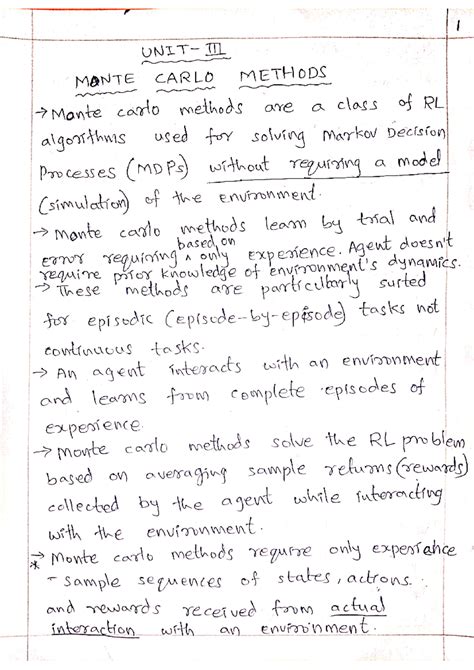 1
UNIT-III
MONTE CARLO METHODS
→ Monte carlo methods are a class of RL
algorithms used for solving Markov Decision
Processes (MDPs) without requiring a model
(simulation) of the environment.
→ Monte carlo methods learn by trial and
error requiring ^ based on only experience. Agent doesn't
require prior knowledge of environment's dynamics.
→ These methods are particularly suited
for episodic (episode-by-episode) tasks not
continuous tasks.
→ An agent interacts with an environment
and learns from complete episodes of
experience.
→ Monte carlo methods solve the RL problem
based on averaging sample returns (rewards)
collected by the agent while interacting
with the environment.
→ * Monte carlo methods require only experience
- sample sequences of states, actions.
and rewards received from actual
interaction with an environment.